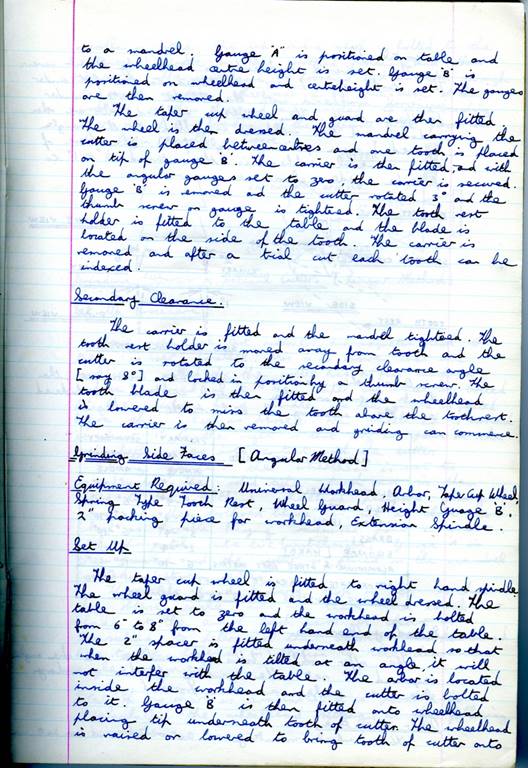 to a mandrel. Gauge "A" is positioned on table and
the wheelhead centre height is set. Gauge "B" is
positioned on wheelhead and centreheight is set. The gauges
are then removed.
The taper cup wheel and guard are then fitted.
The wheel is then dressed. The mandrel carrying the
cutter is placed between centres and one tooth is placed
on tip of gauge "B". The carrier is then fitted, and with
the angular gauges set to zero the carrier is secured.
Gauge "B" is removed and the cutter rotated 3° and the
thumb screw on gauge is tighteed. The tooth rest
holder is fitted to the table and the blade is
located on the side of the tooth. The carrier is
removed and after a trial cut each tooth can be
indexed.
Secondary Clearance.
The carrier is fitted and the mandrel tighteed. The
tooth rest holder is moved away from tooth and the
cutter is rotated to the secondary clearance angle
[say 8°] and locked in position by a thumb screw. The
tooth blade is then fitted and the wheelhead
is lowered to miss the tooth above the toothrest.
The carrier is then removed and grinding can commence.
Grinding Side Faces [Angular Method]
Equipment Required: Universal Workhead, Arbor, Taper Cup Wheel,
Spring Type Tooth Rest, Wheel Guard, Height Guage "B",
2" packing piece for workhead, Extension Spindle.
Set Up
The taper cup wheel is fitted to right hand spindle.
The wheel guard is fitted and the wheel dressed. The
table is set to zero and the workhead is bolted
from 6" to 8" from the left hand end of the table.
The 2" spacer is fitted underneath workhead so that
when the workhead is tilted at an angle it will
not interfer with the table. The arbor is located
inside the workhead and the cutter is bolted
to it. Gauge "B" is then fitted onto wheelhead
placing tip underneath tooth of cutter. The wheelhead
is raised or lowered to bring tooth of cutter onto